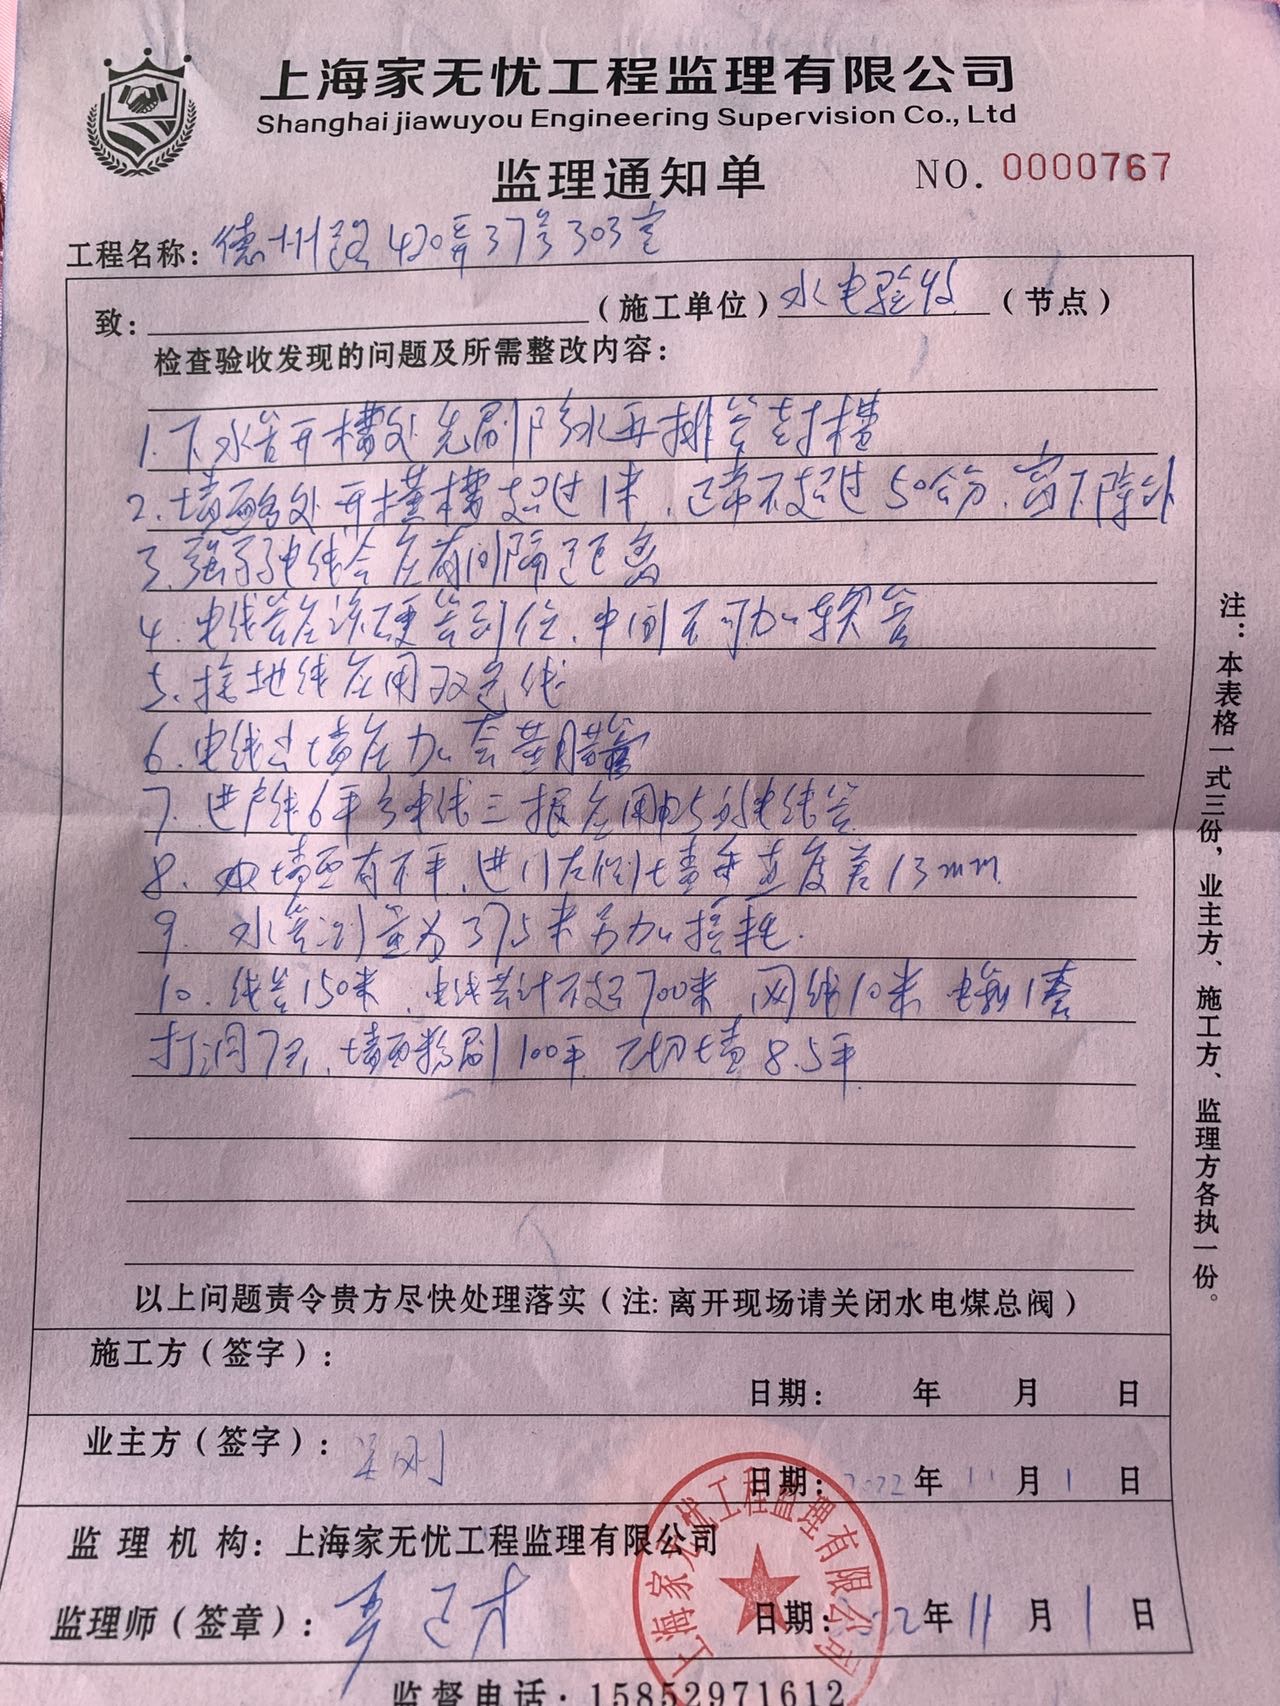 上海家无忧工程监理有限公司
Shanghai jiawuyou Engineering Supervision Co., Ltd
监理通知单 NO. 0000767
工程名称: 德州路420弄37号303室
致: （施工单位）水电验收（节点）
检查验收发现的问题及所需整改内容:
1. 下水管开槽处先刷防水再排管封槽
2. 墙面多处开横槽超过1米，正常不超过50公分，
3. 强弱电线会应有间隔距离
4. 电线管应该硬管到位，中间不可加软管
5. 接地线应用双色线
6. 电线出墙应加套黄腊管
7. 进户线6平方电线三根应用 线管
8. 墙面有不平，进门左侧墙垂直度差13mm
9. 水管测量为 米另加损耗.
10. 线管150米，电线共计不超700米 网线10米 电箱1套
打洞7只，墙面粉刷100平 切墙8.5平
以上问题责令贵方尽快处理落实（注: 离开现场请关闭水电煤总阀）
施工方（签字）:
日期: 年 月 日
业主方（签字）:
日期: 2022年11月1日
监理机构: 上海家无忧工程监理有限公司
监理师（签章）:
日期: 2022年11月1日
监督电话: 15852971612
注：本表格一式三份，业主方、施工方、监理方各执一份。
上海家无忧工程监理有限公司